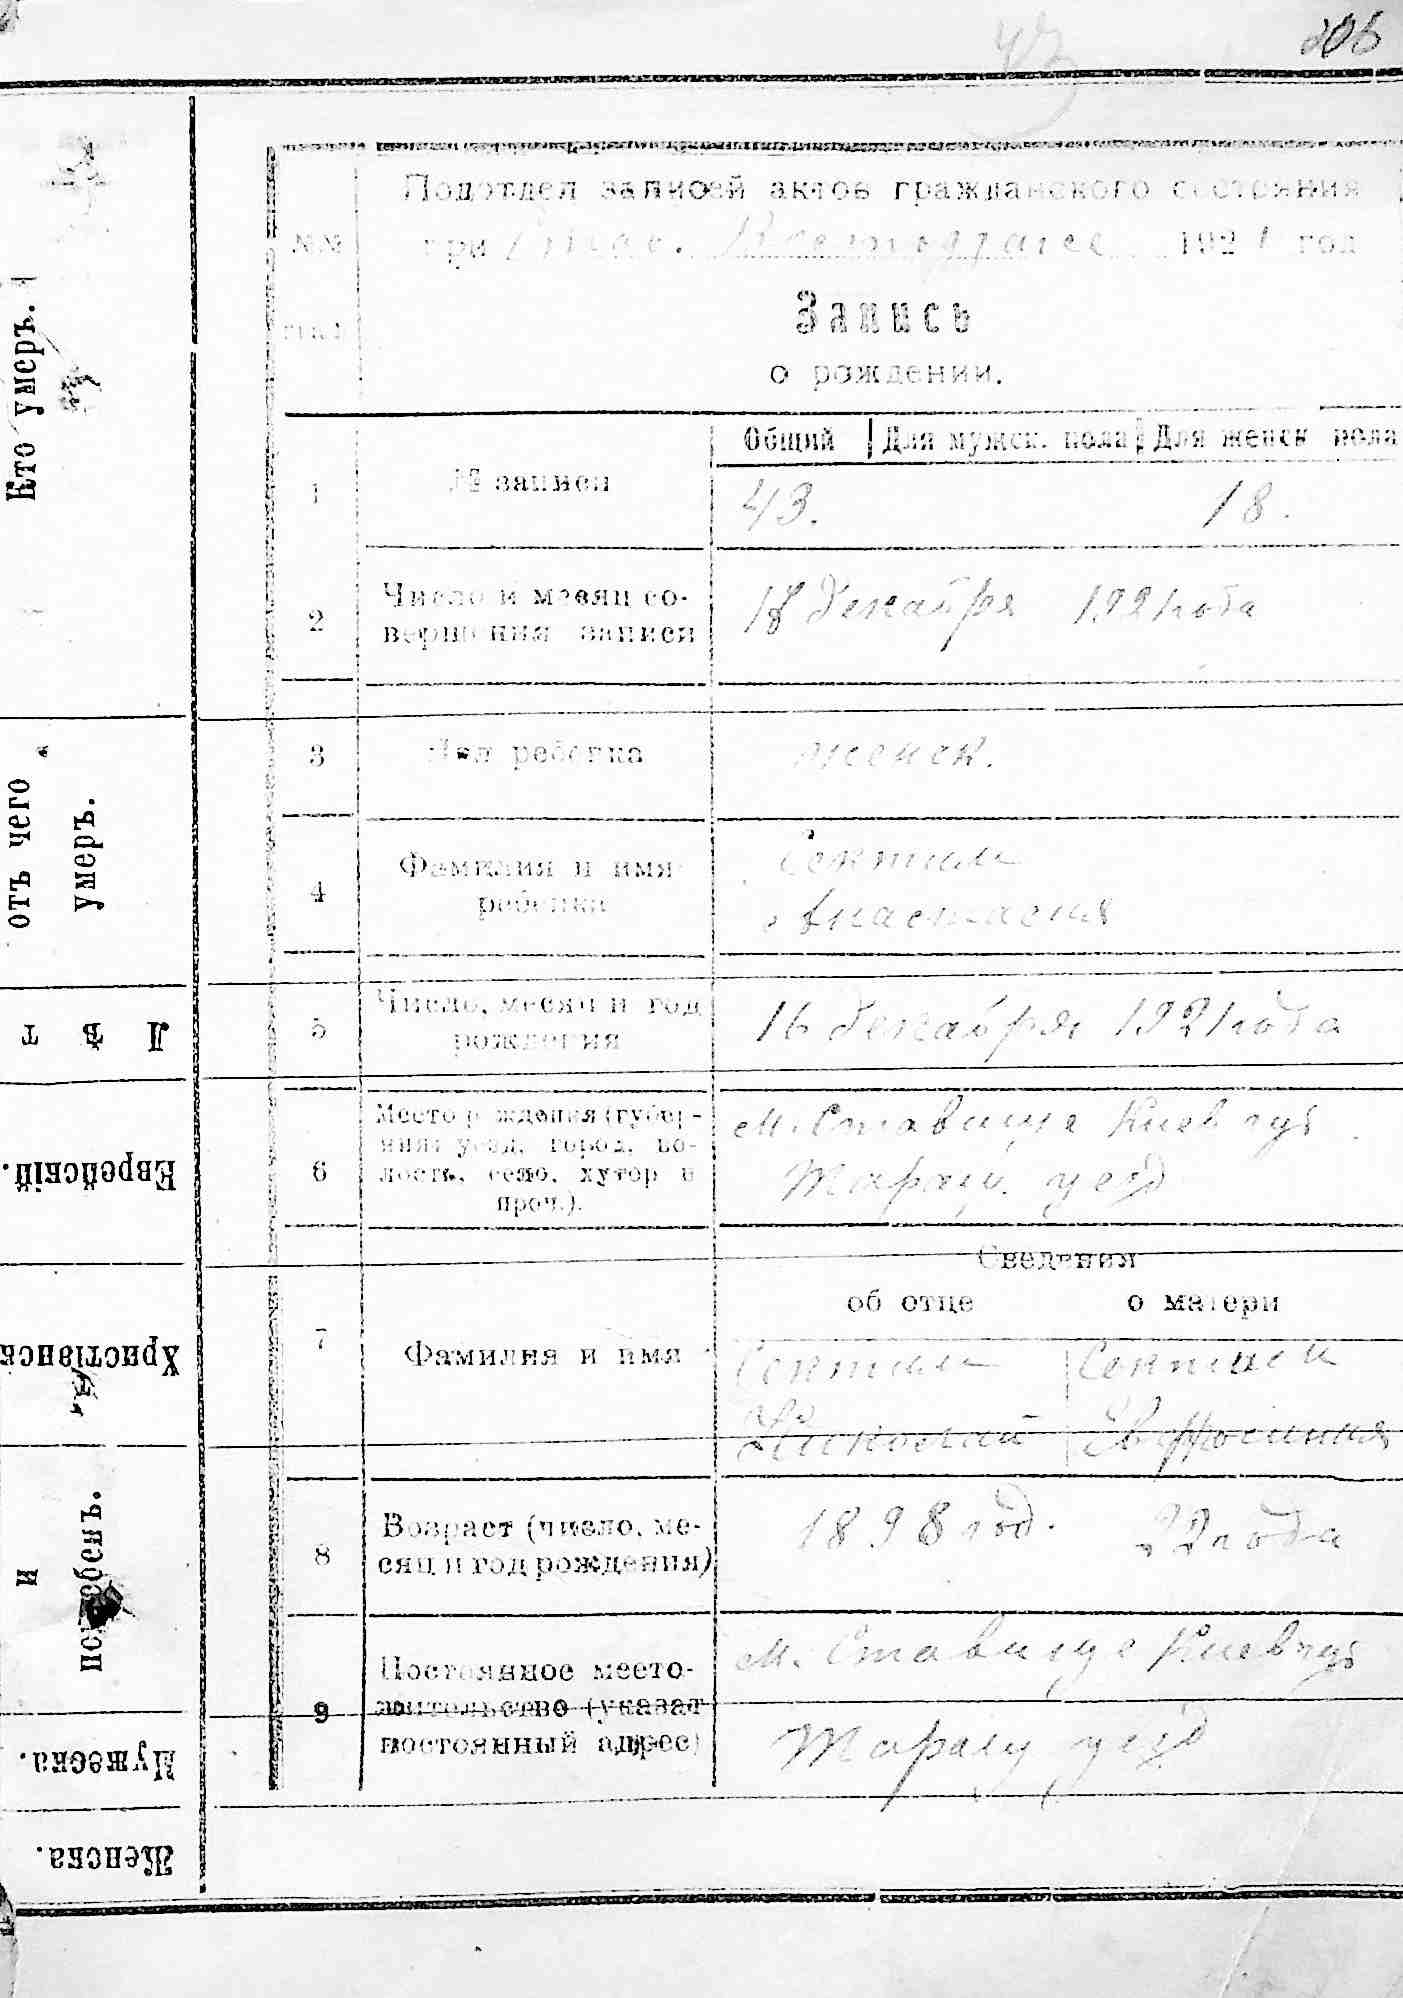 206
43
Подотдел записей актов гражданского состояния
при Став. 1921 год
№№
Запись
о рождении.
Общий Для мужск. пола Для женск пола
1 № записи 43. 18.
2 Число и месяц со-
вершения записи
18 декабря 1921 года
3 Пол ребенка женск.
4 Фамилия и имя
ребенка
Анастасия
5 Число, месяц и год
рождения
16 декабря 1921 года
6 Место рождения (губер-
ния, уезд, город, во-
лость, село, хутор и
проч.).
м. Ставище Киев губ
Таращ. уезд
Сведения
об отце о матери
7 Фамилия и имя
Николай Евфросиния
8 Возраст (число, ме-
сяц и год рождения)
1898 год. 22 года
9 Постоянное место-
жительство (указат
постоянный адрес)
м. Ставище Киев губ
Таращ уезд
Кто умеръ.
отъ чего
умеръ.
Лѣт
Еврейскій.
Христіанск
и
погребенъ.
Мужеска.
Женска.